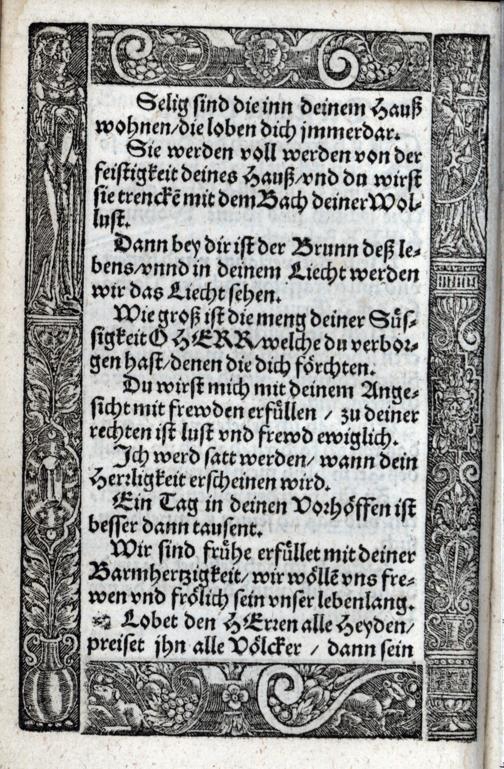 Selig sind die inn deinem Hauß
wohnen/die loben dich jmmerdar.
Sie werden voll werden von der
feistigkeit deines Hauß/vnd du wirst
sie trenckẽ mit dem Bach deiner Wol-
lust.
Dann bey dir ist der Brunn deß le-
bens/vnnd in deinem Liecht werden
wir das Liecht sehen.
Wie groß ist die meng deiner Süs-
sigkeit O HERR/welche du verbor-
gen hast/denen die dich förchten.
Du wirst mich mit deinem Ange-
sicht mit frewden erfüllen / zu deiner
rechten ist lust vnd frewd ewiglich.
Ich werd satt werden/ wann dein
Herrligkeit erscheinen wird.
Ein Tag in deinen Vorhöffen ist
besser dann tausent.
Wir sind frühe erfüllet mit deiner
Barmhertzigkeit/ wir wöllẽ vns fre-
wen vnd frölich sein vnser lebenlang.
☙ Lobet den HErren alle Heyden/
preiset jhn alle Völcker / dann sein